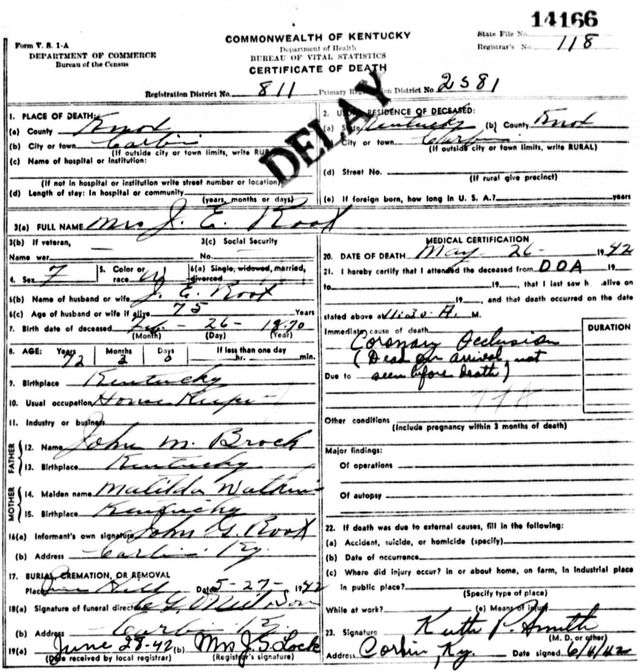 14166
Form V. S. 1-A
COMMONWEALTH OF KENTUCKY
State File No.
DEPARTMENT OF COMMERCE
Department of Health
Registrar's No. 118
Bureau of the Census
BUREAU OF VITAL STATISTICS
CERTIFICATE OF DEATH
Registration District No. 811 Primary Registration District No. 2381
DELAY
1. PLACE OF DEATH:
(a) County Knox
(b) City or town Corbin
(If outside city or town limits, write RURAL)
(c) Name of hospital or institution:
(If not in hospital or institution write street number or location)
(d) Length of stay: In hospital or community
(years, months or days)
2. USUAL RESIDENCE OF DECEASED:
(a) State Kentucky (b) County Knox
City or town Corbin
(If outside city or town limits, write RURAL)
(d) Street No.
(If rural give precinct)
(e) If foreign born, how long in U. S. A.?
3(a) FULL NAME Mrs J. E. Root
3(b) If veteran,
Name war
3(c) Social Security
No.
4. Sex F 5. Color or race W 6(a) Single, widowed, married, divorced
6(b) Name of husband or wife J. E. Root
6(c) Age of husband or wife if alive 75 Years
7. Birth date of deceased Feb - 26 - 1870
(Month) (Day) (Year)
8. AGE: Years 72 Months 3 Days 0 If less than one day
hr. min.
9. Birthplace Kentucky
10. Usual occupation House Keeper
11. Industry or business
FATHER
12. Name John M. Brock
13. Birthplace Kentucky
MOTHER
14. Maiden name Matilda
15. Birthplace Kentucky
16(a) Informant's own signature John G. Root
(b) Address Corbin Ky.
17. BURIAL, CREMATION, OR REMOVAL
Place Hill Date 5-27- 1942
18(a) Signature of funeral director
(b) Address Corbin Ky.
19(a) June 28-42 (b) Mrs J. S. Lock
(Date received by local registrar) (Registrar's signature)
MEDICAL CERTIFICATION
20. DATE OF DEATH May 26- 1942
21. I hereby certify that I attended the deceased from DOA 19
to 19 , that I last saw h alive on
19 , and that death occurred on the date
stated above at A. M.
Immediate cause of death
DURATION
Coronary Occlusion
(Dead on arrival, not
Due to seen before death)
Other conditions
(Include pregnancy within 3 months of death)
Major findings:
Of operations
Of autopsy
22. If death was due to external causes, fill in the following:
(a) Accident, suicide, or homicide (specify)
(b) Date of occurrence
(c) Where did injury occur? in or about home, on farm, in industrial place
in public place?
(Specify type of place)
While at work? (e) Means of injury
23. Signature Keith P. Smith
(M. D. or other)
Address Corbin, Ky. Date signed 6/6/42